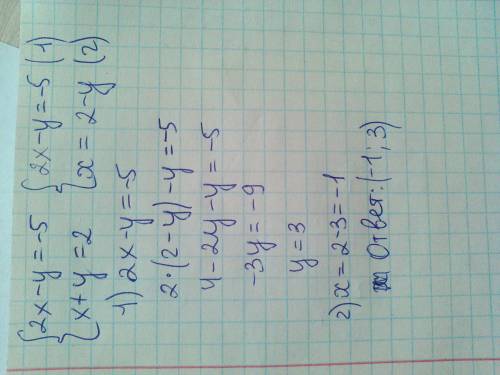 {2x-y=-5 {2x-y=-5 (1)
{x+y=2 {x=2-y (2)
1) 2x-y=-5
2·(2-y)-y=-5
4-2y-y=-5
-3y=-9
y=3
2) x=2-3=-1
Ответ: (-1; 3)